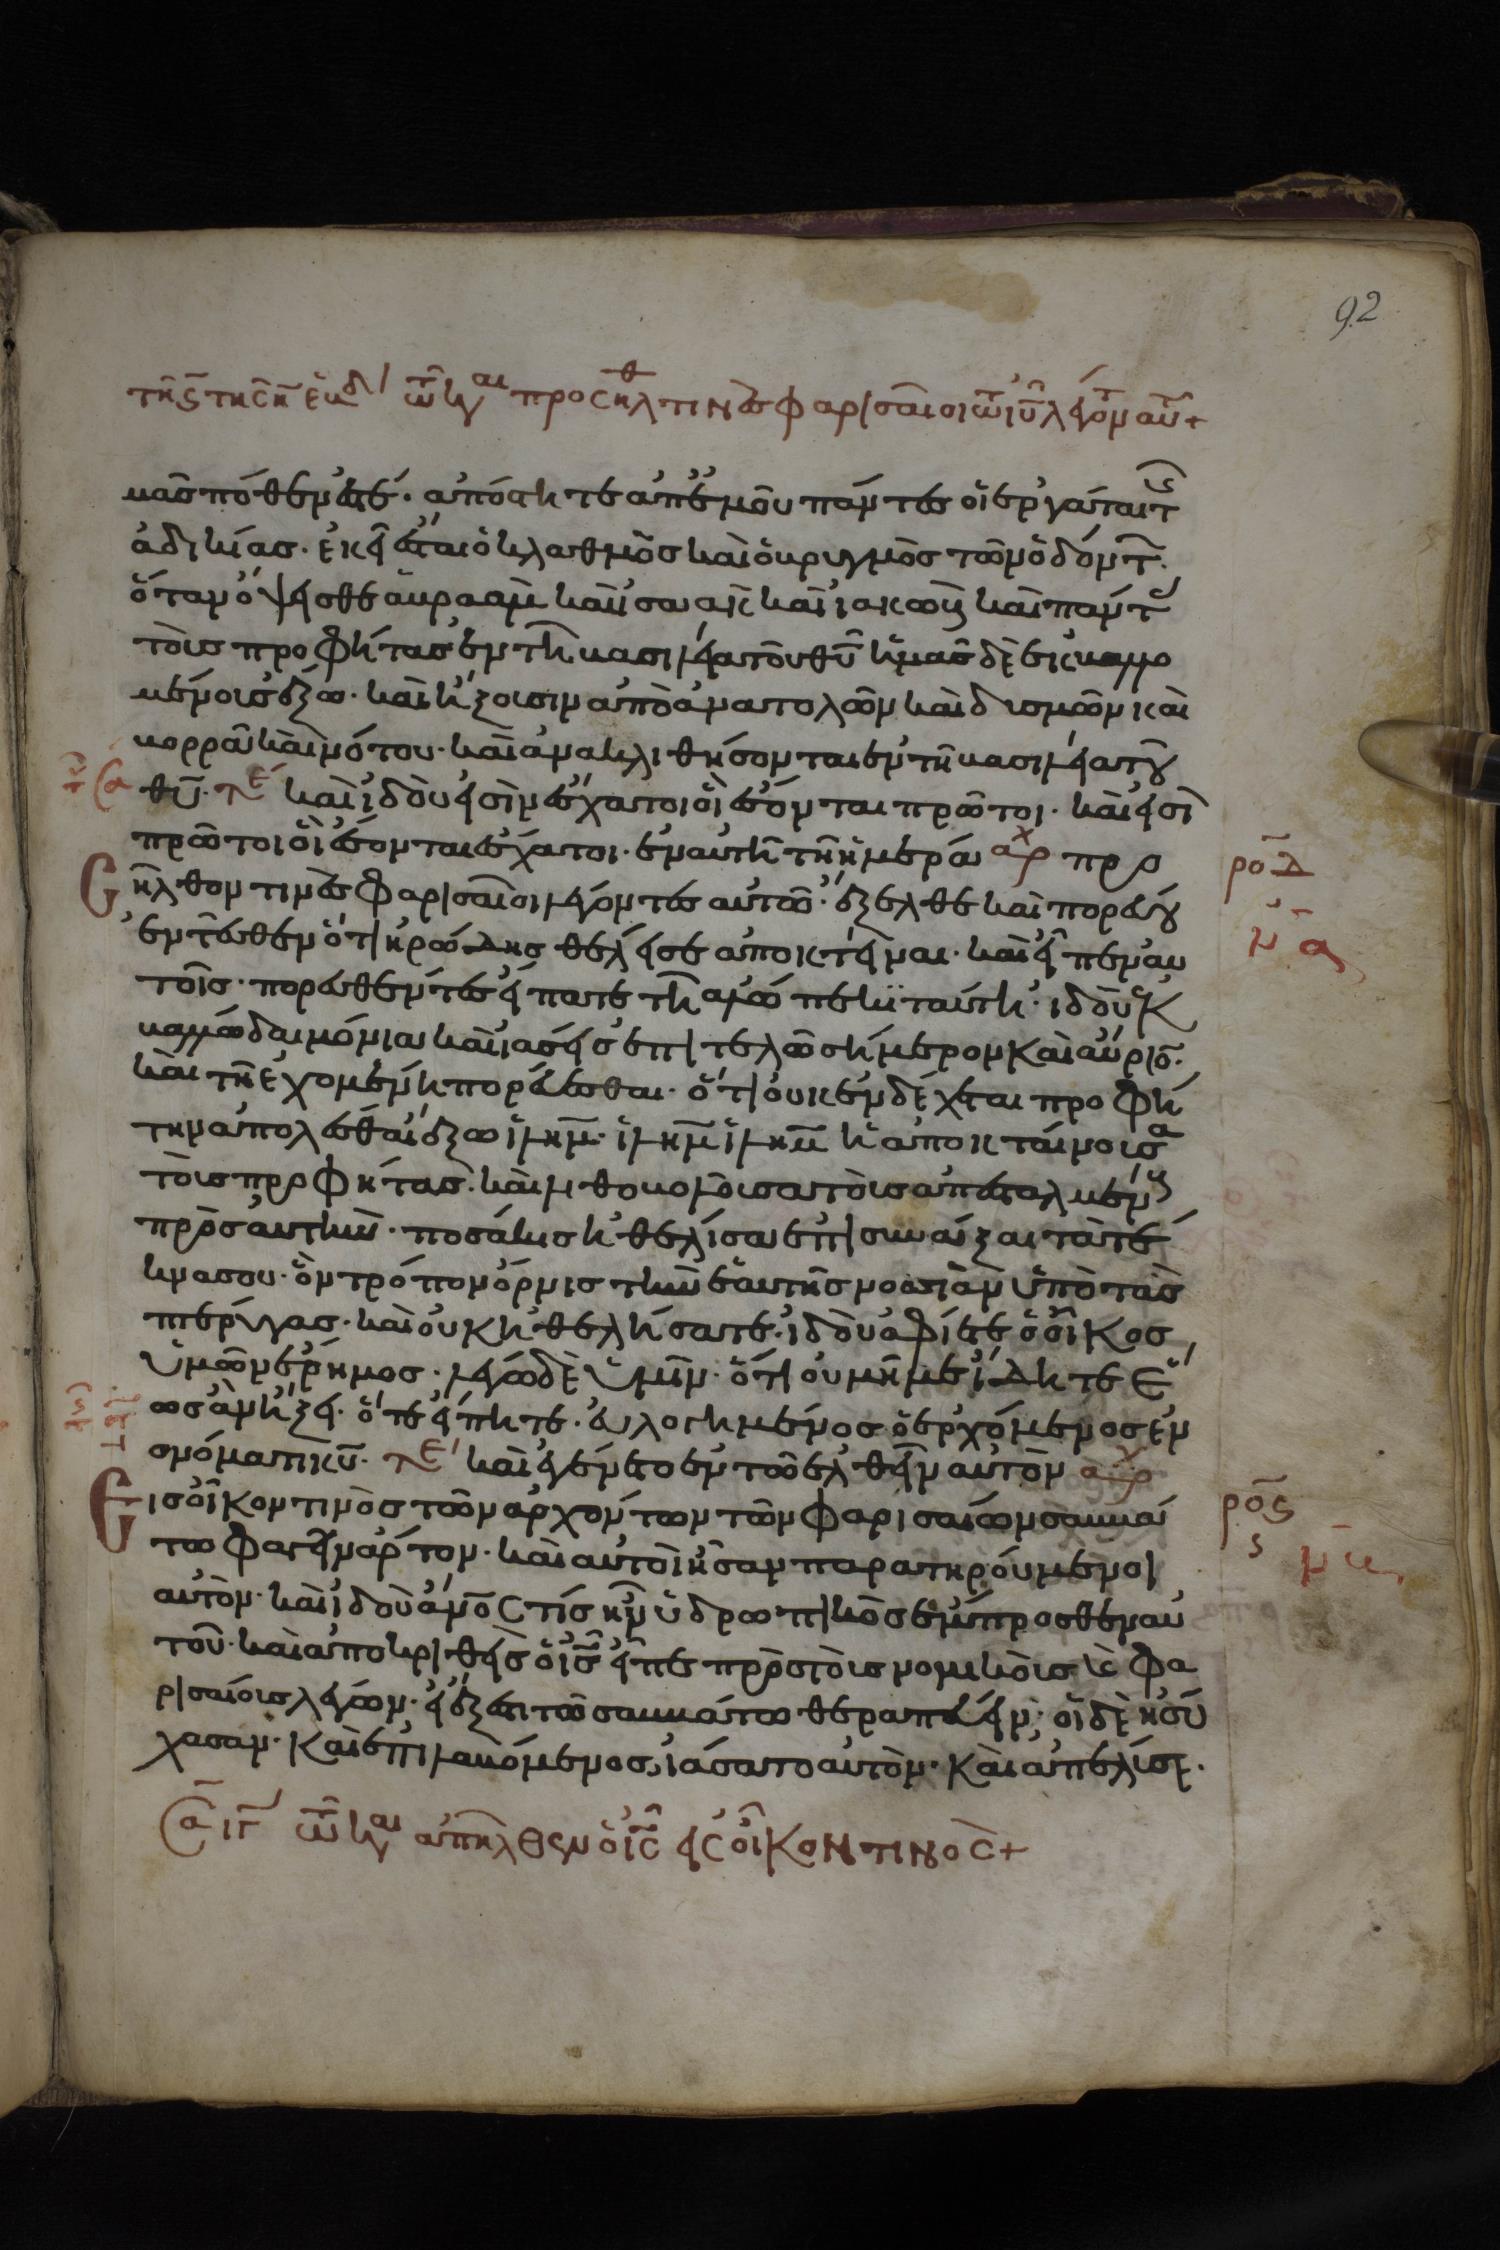 92
προσηλθ τινὲς φαρισαῖοι τῶ ιυ λέγοντ αυτ +
μᾶς πόθεν ἐστέ· ἀπόστητε ἀπ' ἐμοῦ πάντες οἱ ἐργάται τς
ἀδικίας· ἐκεῖ ἔσται ὁ κλαθμὸς καὶ ὁ βρυγμὸς τῶν ὀδόντ·
ὅταν ὄψεσθε ἀβραὰμ καὶ ἰσαὰκ καὶ ἰακὼβ καὶ πάντ
τοὺς προφήτας ἐν τῆ βασιλεία τοῦ θῦ ὑμᾶς δὲ ἐκβαλλο
μένους ἔξω· καὶ ἥξουσιν ἀπὸ ἀνατολῶν καὶ δυσμῶν καὶ
βορρᾶ καὶ νότου· καὶ ἀνακλιθήσονται ἐν τῆ βασιλεία τοῦ
θῦ· τε καὶ ἰδοὺ εἰσὶν ἔσχατοι οἳ ἔσονται πρῶτοι· καὶ εἰσὶ
πρῶτοι οἳ ἔσονται ἔσχατοι· ἐν αὐτῆ τῆ ἡμέρα αρχ προ
ροδ
σῆλθον τινὲς φαρισαῖοι λέγοντες αὐτῶ· ἔξελθε καὶ πορεύου
μα
ἐντεῦθεν ὅτι ἡρώδης θέλει σε ἀποκτεῖναι· καὶ εἶπεν αὐ
τοῖς· πορευθέντες εἴπατε τῆ ἀλώπεκι ταύτη· ἰδοὺ ἐκ
βάλλω δαιμόνια καὶ ἰάσεις ἐπιτελῶ σήμερον καὶ αὔριο·
καὶ τῆ ἐχομένη πορεύεσθαι· ὅτι οὐκ ἐνδέχεται προφή
την ἀπολέσθαι ἔξω ἰλημ· ἰλημ ἰλημ ἡ ἀποκταίνουσα
τοὺς προφήτας· καὶ λιθοβολοῦσα τοὺς ἀπεσταλμένους
πρὸς αὐτὴν· ποσάκις ἠθέλισα ἐπισυνάξαι τὰ τέ
κνα σου· ὃν τρόπον ὄρνις τὴν ἑαυτῆς νοσσιὰν ὑπὸ τὰς
πτέρυγας· καὶ οὐκ ἠθελήσατε· ἰδοὺ ἀφίεται ὁ οἶκος
ὑμῶν ἔρημος· λέγω δὲ ὑμῖν· ὅτι οὐ μή με ἴδητε ἕ
ως ἂν ἥξει· ὅτε εἴπητε· εὐλογημένος ὁ ἐρχόμενος ἐν
ονόματι κυ· τε καὶ ἐγένετο ἐν τῶ ἐλθεῖν αὐτὸν αρχ
ρος
Εἰς οἶκον τινὸς τῶν ἀρχόντων τῶν φαρισαίων σαββά
τω φαγεῖν ἄρτον· καὶ αὐτοὶ ἦσαν παρατηρούμενοι
αὐτὸν· καὶ ἰδοὺ ἄνος τίς ἦν ὑδρωπικὸς ἔμπροσθεν αὐ
τοῦ· καὶ ἀποκριθεὶς ὁ ις εἶπε πρὸς τοὺς νομικοὺς κ φα
ρισαίους λέγων· εἰ ἔξεστι τῶ σαββάτω θεραπεύειν· οἱ δὲ ἡσύ
χασαν· καὶ ἐπιλαβόμενος, ἰάσατο αὐτὸν· καὶ ἀπέλισε·
ἀπῆλθεν ὁ ις εἰς οἶκον τινος +